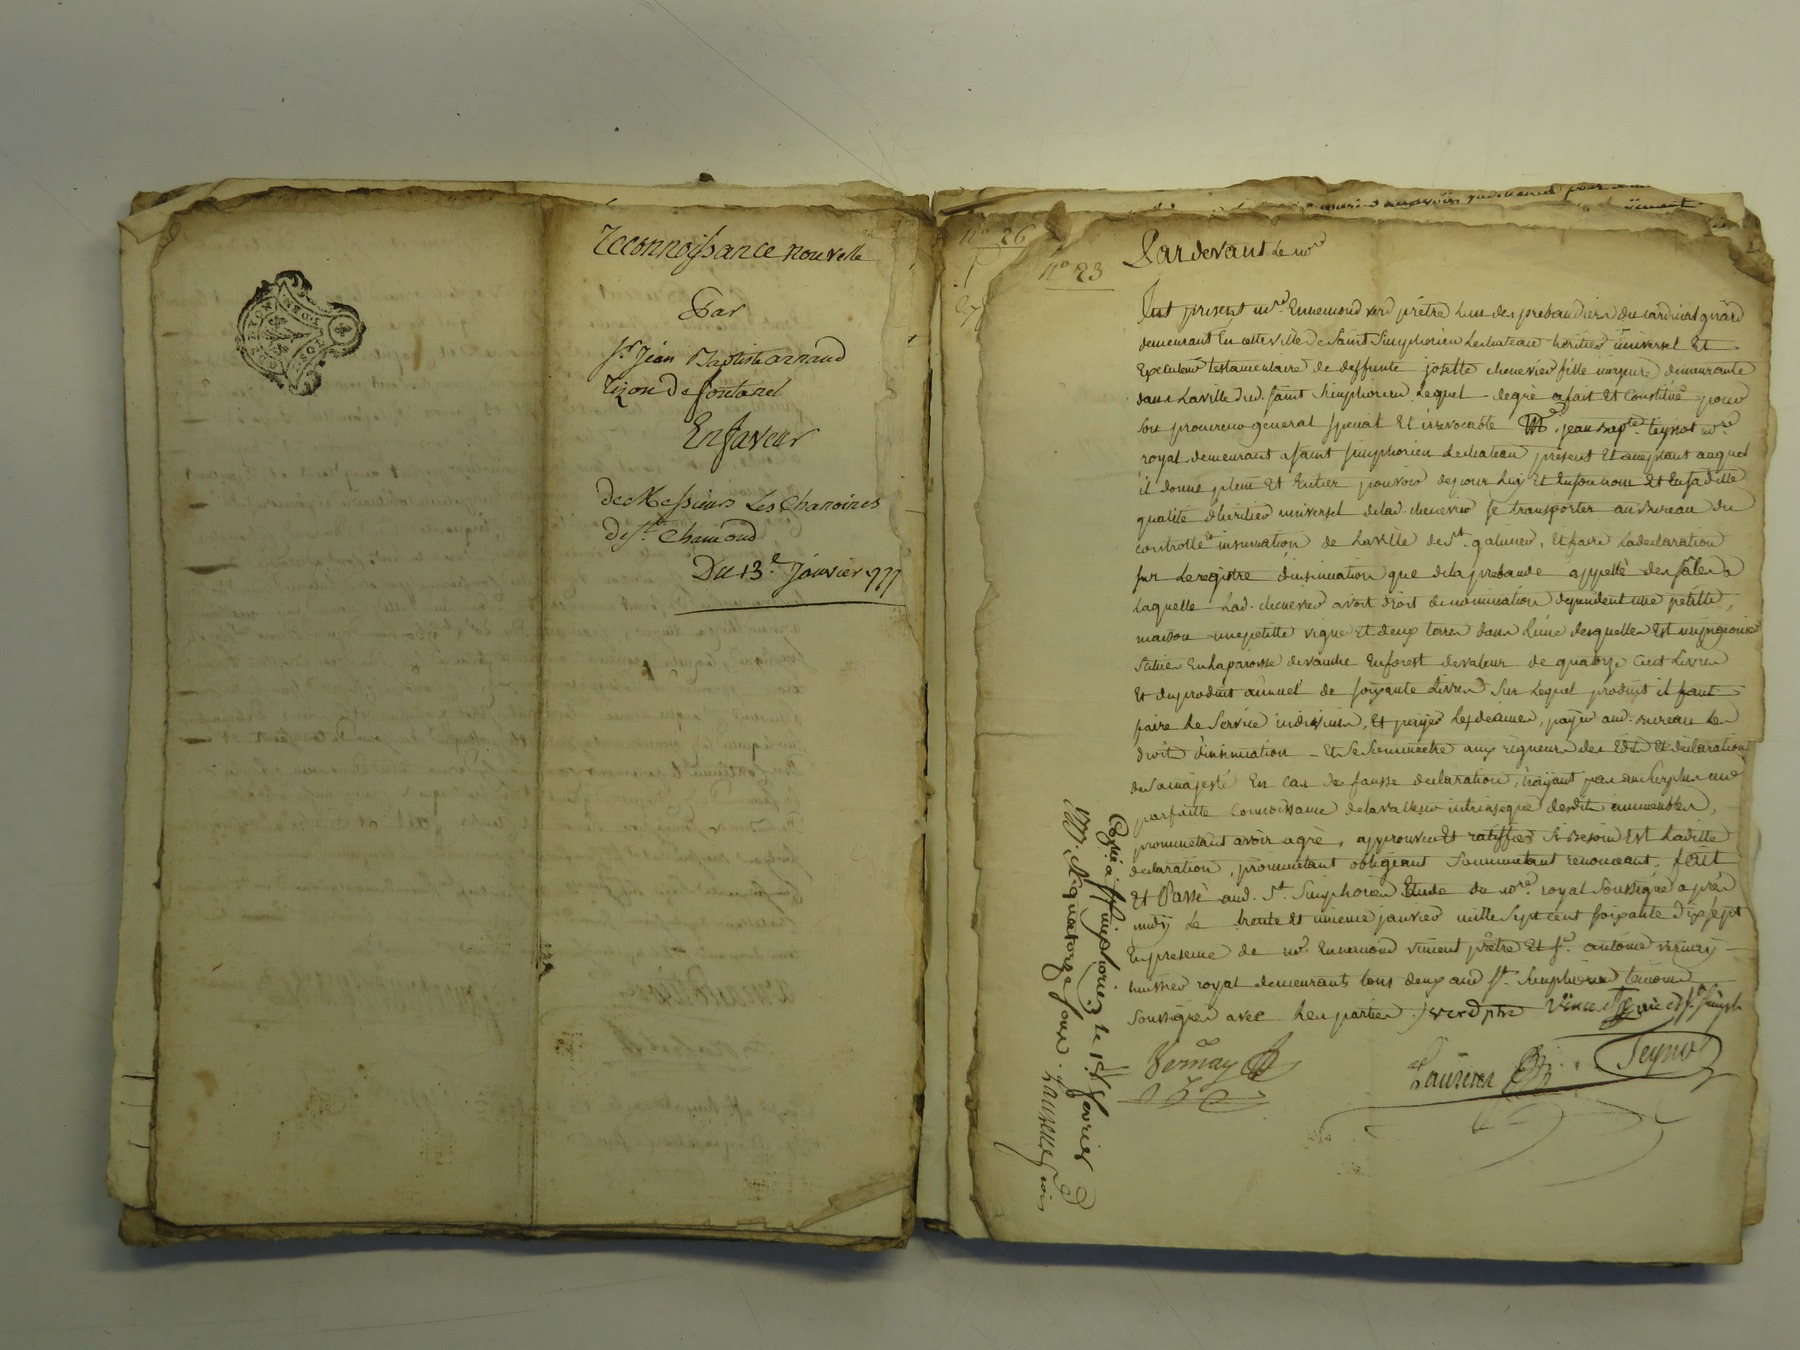 Reconnoissance nouvelle
Par
Sr. Jean Baptiste arnaud
Tizon de fontanel
En faveur
de Messieurs Les Chanoines
de St. Chamond
Du 13e. Janvier 777
n° 26
n° 23
Pardevant Le nre
fut present mre Ennemond verd prêtre L'un des prebandiers du cardinal girard
demeurant En cette ville de Saint Simphorien Lechateau héritier universel Et
Executeur testamentaire de deffunte josette chenevier fille majeure demeurante
dans Laville dud. saint Simphorien, Lequel de gré a fait Et constitué pour
son procureur general special Et irrevocable Me. jean bapte. teynot nre.
royal demeurant a saint simphorien Lechateau present Et acceptant auquel
il donne plein Et Entier pouvoir de pour Luy Et En son nom Et En sa ditte
qualité d'heritier universel delad. chenevier se transporter au Bureau du
controlle et insinuation de Laville de St. galmier, Et faire La declaration
sur Le registre d'insinuation que dela prebande appellé des
Laquelle Lad. chenevier avoit droit de nomination dependent une petitte
maison une petitte vigne Et deux terres dans L'une desquelles Est un pigeonier
situés En La paroisse de En forest de valeur de quatorze cent Livres
Et du produit annuel de soixante Livres sur Lequel produit il faut
faire Le service indivisin, Et payer Les decimes, payer aud. Bureau Les
droits d'insinuation Et se soummettre aux rigueurs des Edits Et declarations
de sa majesté En cas de fausse declaration, n'ayant pas au surplus une
parfaitte connoissance de la valleur intrinseque desdits immeubles,
promettant avoir agré, approuver Et ratiffier si Besoin Est Laditte
declaration, promettant obligeant soummettant renonceant, fait
Et Passé aud. St. Simphorien Etude du nre. royal soussigné après
midy Le trente Et unieme janvier mille sept cent soixante dix sept
En presence de mre Ennemond vincent prêtre Et sr. antoine vernay
huissier royal demeurants tous deux aud St. Simphorien temoins
soussignés avec Les parties. verd ptre Vincent
Vernay
Laurenson
Teynot
Collé a St Simphorien le 1er. fevrier
1777. R. quatorze sous. Laurenson